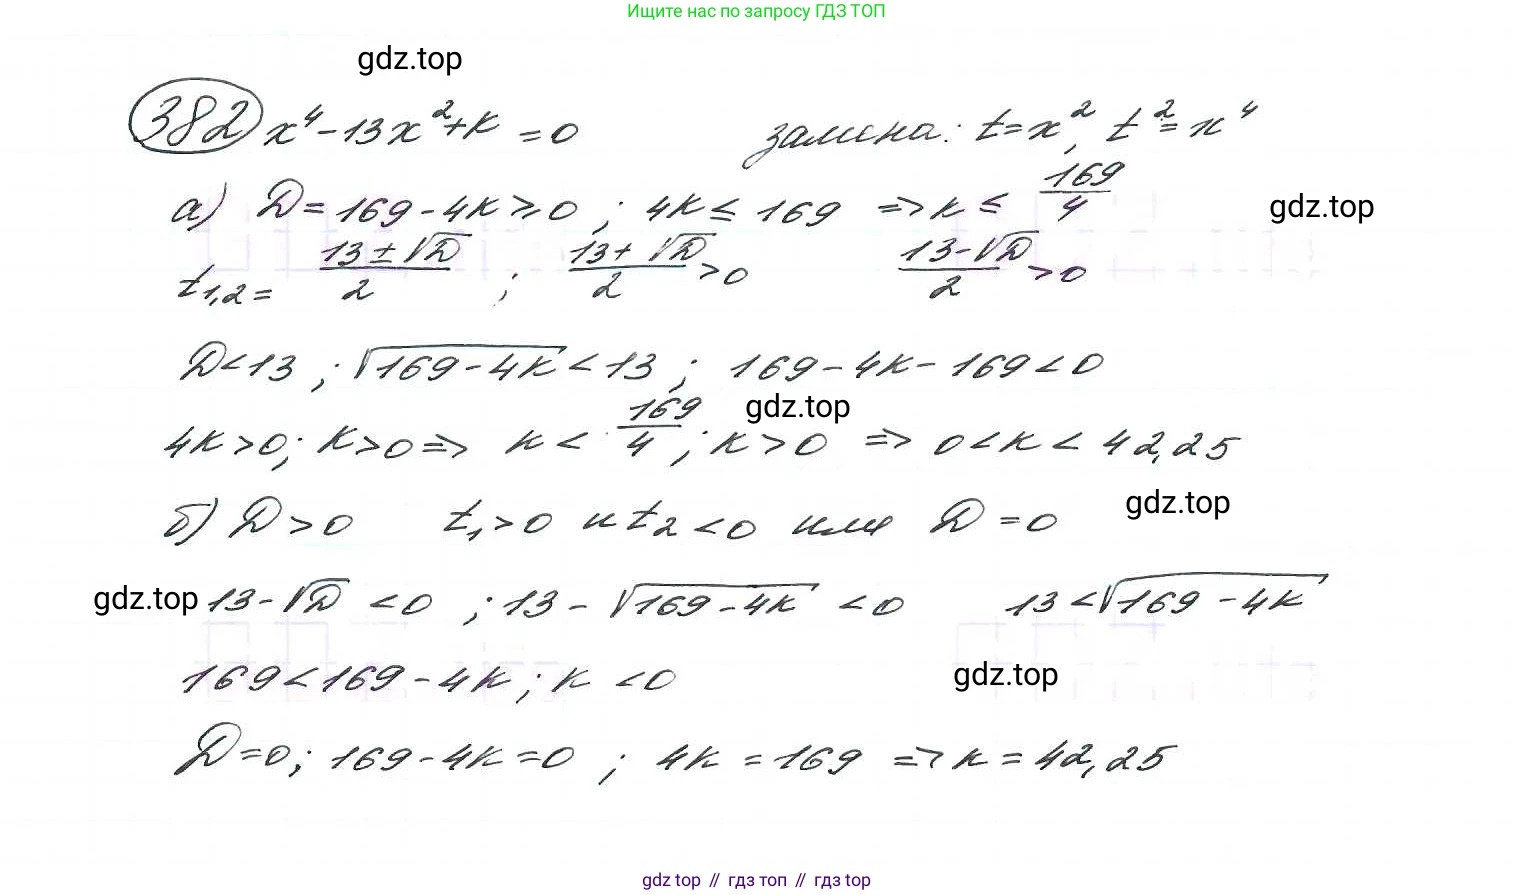 Ищите нас по запросу ГДЗ ТОП
gdz.top
382 x⁴-13x²+k=0 замена: t=x², t²=x⁴
а) D=169-4k≥0; 4k≤169 => k≤169/4
gdz.top
t₁,₂=(13±√D)/2; (13+√D)/2>0 (13-√D)/2>0
D<13; √(169-4k)<13; 169-4k-169<0
gdz.top
4k>0; k>0 => k<169/4; k>0 => 0<k<42,25
б) D>0 t₁>0 и t₂<0 или D=0
gdz.top
gdz.top
13-√D<0; 13-√(169-4k)<0 13<√(169-4k)
169<169-4k; k<0
gdz.top
D=0; 169-4k=0; 4k=169 => k=42,25
gdz top // гдз топ // гдз top